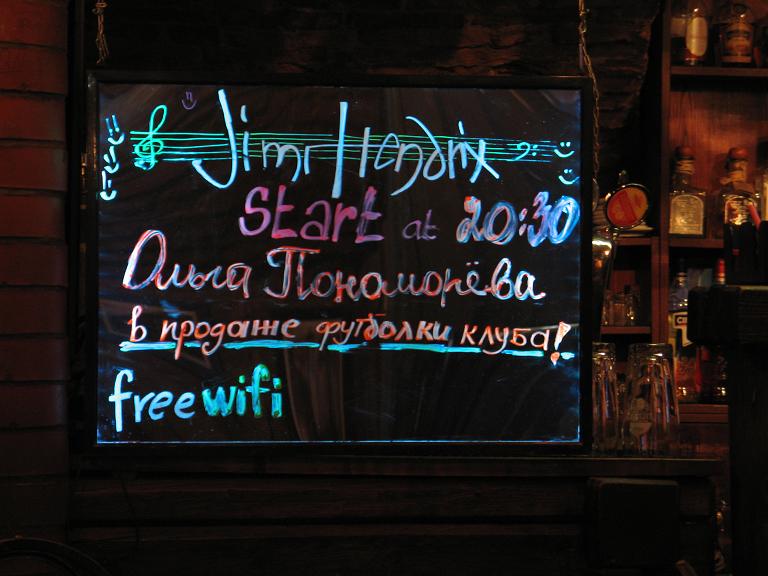 Jimi Hendrix
Start at 20:30
Ольга Пономорёва
в продаже футболки клуба!
free wifi